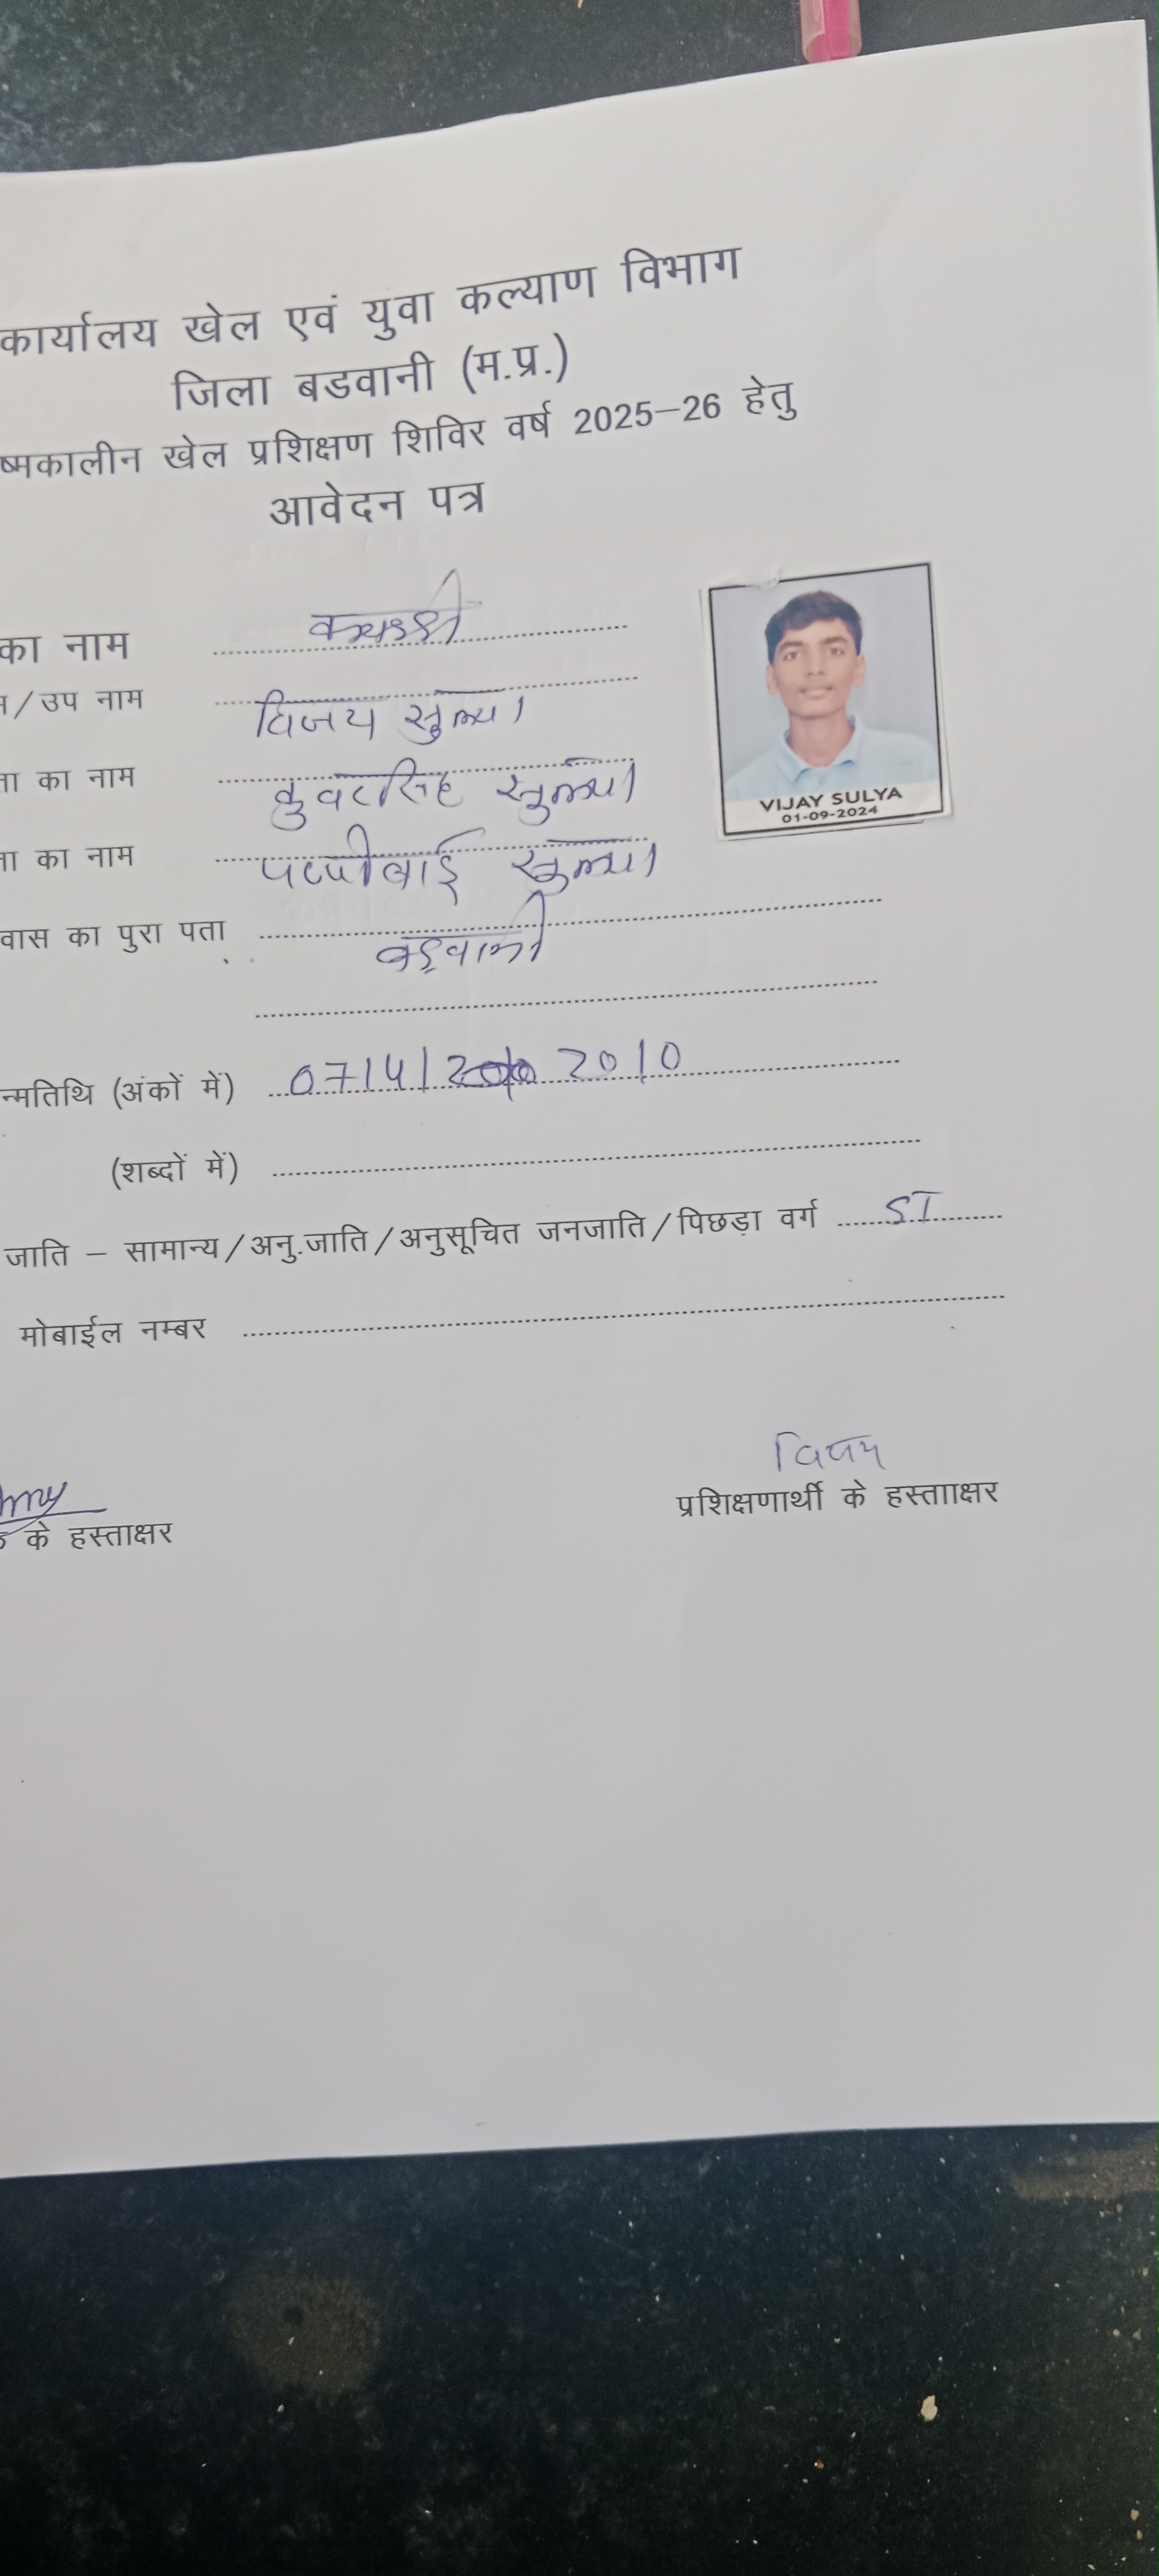 कार्यालय खेल एवं युवा कल्याण विभाग
जिला बडवानी (म.प्र.)
ष्मकालीन खेल प्रशिक्षण शिविर वर्ष 2025–26 हेतु
आवेदन पत्र
का नाम
/उप नाम विजय सुल्या
का नाम कुवरसिंह सुल्या
का नाम सुल्या
वास का पुरा पता बड़वानी
न्मतिथि (अंकों में) 07/4/ 2010
(शब्दों में)
जाति – सामान्य/अनु.जाति/अनुसूचित जनजाति/पिछड़ा वर्ग ST
मोबाईल नम्बर
VIJAY SULYA
01-09-2024
के हस्ताक्षर
विजय
प्रशिक्षणार्थी के हस्तााक्षर